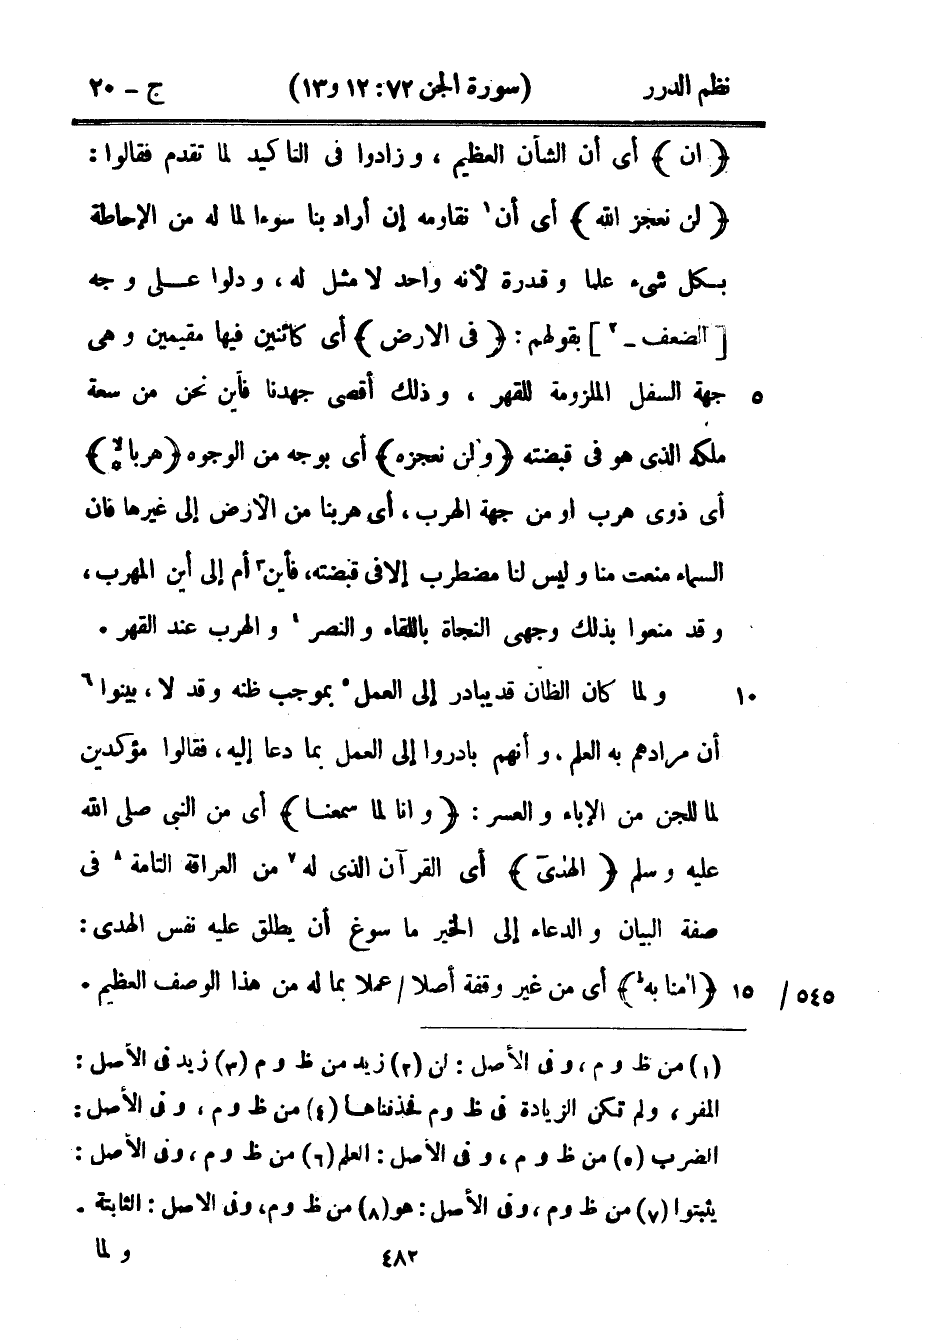 نظم الدرر (سورة الجن ٧٢: ١٢ و ١٣) ج – ٢٠
﴿ ان ﴾ أى أن الشأن العظيم ، و زادوا فى التأكيد لما تقدم فقالوا :
﴿ لن نعجز الله ﴾ أى أن١ نقاومه إن أراد بنا سوءا لما له من الإحاطة
بكل شىء علما و قدرة لأنه واحد لا مثل له ، و دلوا على وجه
[ الضعف – ٢ ] بقولهم : ﴿ فى الارض ﴾ أى كائنين فيها مقيمين و هى
٥ جهة السفل الملزومة للقهر ، و ذلك أقصى جهدنا فأين نحن من سعة
ملكه الذى هو فى قبضته ﴿ و لن نعجزه ﴾ أى بوجه من الوجوه ﴿ هرباۙ ﴾
أى ذوى هرب او من جهة الهرب ، أى هربنا من الأرض إلى غيرها فان
السماء منعت منا و ليس لنا مضطرب إلا فى قبضته، فأين٣ أم إلى أين المهرب ،
و قد منعوا بذلك وجهى النجاة باللقاء و النصر ٤ و الهرب عند القهر .
١٠ و لما كان الظان قد يبادر إلى العمل ٥ بموجب ظنه و قد لا ، بينوا ٦
أن مرادهم به العلم . و أنهم بادروا إلى العمل بما دعا إليه ، فقالوا مؤكدين
لما للجن من الإباء و العسر : ﴿ و انا لما سمعنا ﴾ أى من النبى صلى الله
عليه و سلم ﴿ الهدىٰٓ ﴾ أى القرآن الذى له ٧ من العراقة التامة ٨ فى
صفة البيان و الدعاء إلى الخير ما سوغ أن يطلق عليه نفس الهدى :
٥٤٥ / ١٥ ﴿ اٰمنا بهؕ ﴾ أى من غير وقفة أصلا / عملا بما له من هذا الوصف العظيم .
(١) من ظ و م ، و فى الأصل : لن (٢) زيد من ظ و م (٣) زيد فى الأصل :
المفر ، ولم تكن الزيادة فى ظ و م فحذفناها (٤) من ظ و م ، و فى الأصل :
الضرب (٥) من ظ و م ، و فى الأصل : العلم (٦) من ظ و م ، وفى الأصل :
يثبتوا (٧) من ظ و م ، وفى الأصل : هو (٨) من ظ و م، وفى الاصل : الثابتة .
٤٨٢ و لما